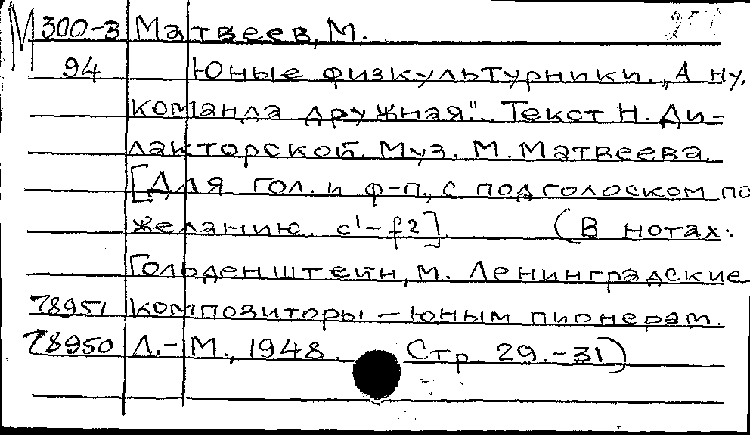 М 300-3 Матвеев, М.
94 Юные физкультурники. „А ну,
команда дружная". Текст Н. Ди-
лакторской. Муз. М. Матвеева
[Для гол. и ф-п, с подголоском по
желанию. c¹-f2]. (В нотах:
Гольденштейн, М. Ленинградские
78951 композиторы – юным пионерам.
78950 Л.-М., 1948. Стр 29.-31)